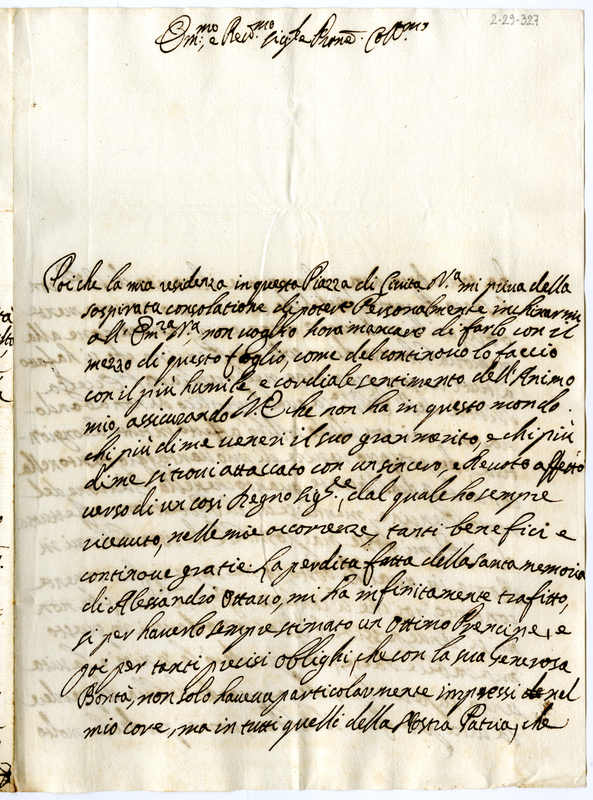 2-29-327
Em.mo e Rev.mo Sig.re Prone Coll.mo
Poi che la mia residenza in questa Piazza di Civita N.a mi priva della
sospirata consolatione di potere Personalmente inchinarmi
a V.ra Em.za R.ma non voglio hora mancare di farlo con il
mezzo di questo foglio, come del continovo lo faccio
con il più humile, e cordiale sentimento dell'Animo
mio, assicurando V.E che non ha in questo mondo
chi più di me veneri il suo gran merito, e chi più
di me si trovi attaccato con un sincero, e devoto affetto
verso di un così Degno Sig.re, dal quale ho sempre
ricevuto, nelle mie accorrenze, tanti benefici e
continove gratie. La perdita fatta della santa memoria
di Alessandro Ottavo, mi ha infinitamente trafitto,
si per haverlo sempre stimato un Ottimo Prencipe, e
poi per tanti precisi oblighi, che con la sua generosa
Bontà, non solo haveva particolarmente impressi nel
mio core, ma in tutti quelli della Nostra Patria, che